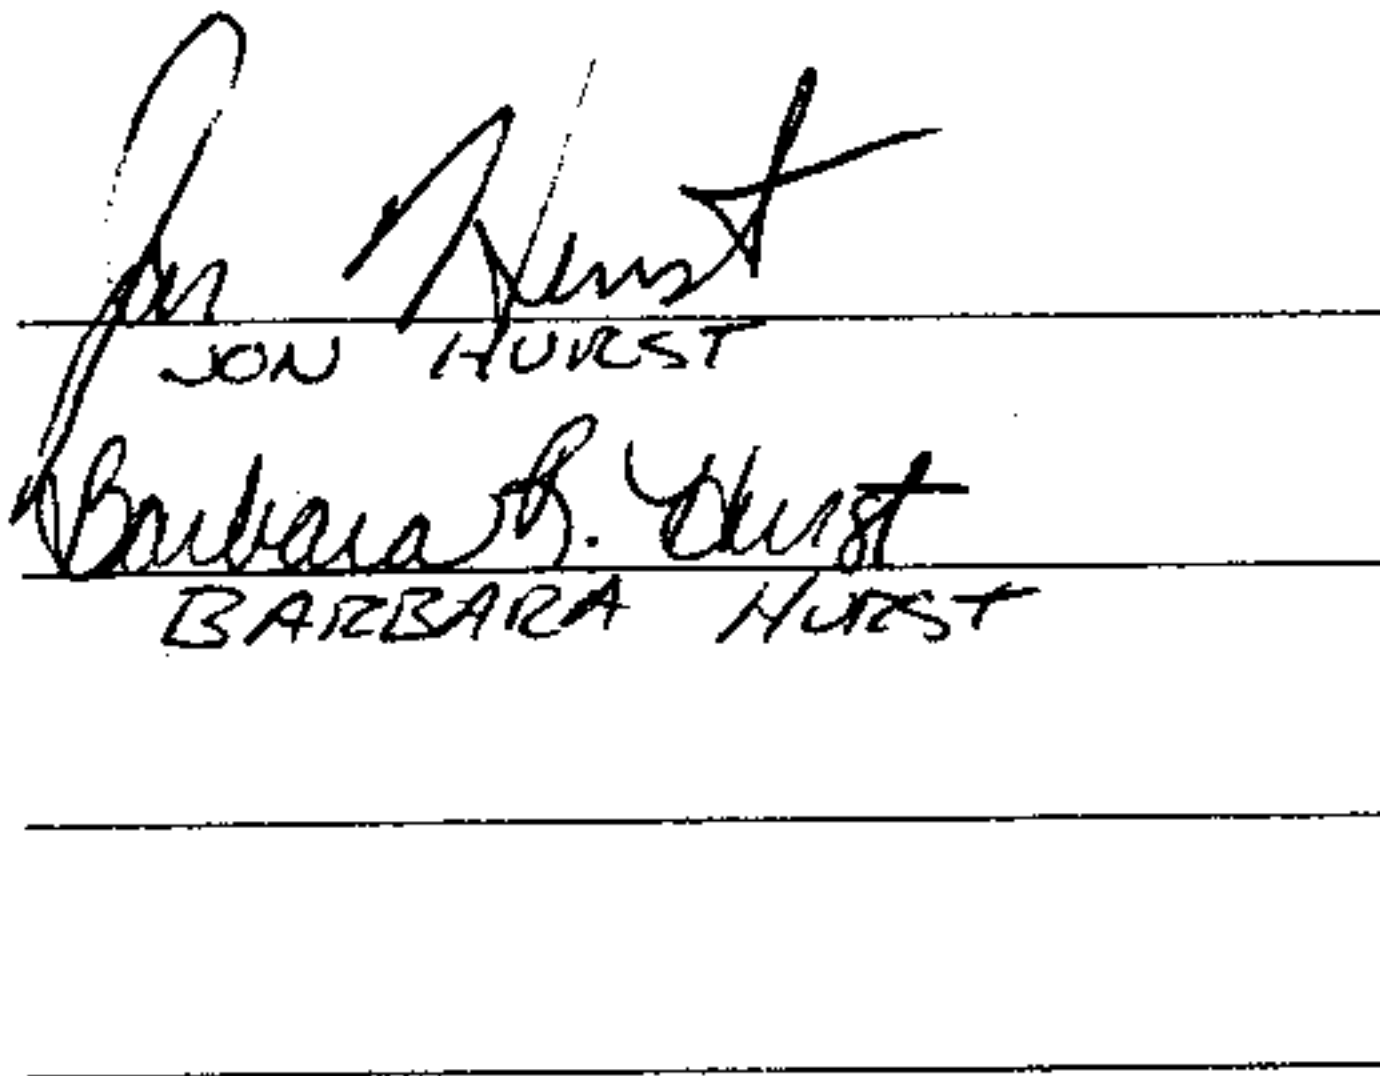 Jon Hurst
JON HURST
Barbara R. Hurst
BARBARA HURST